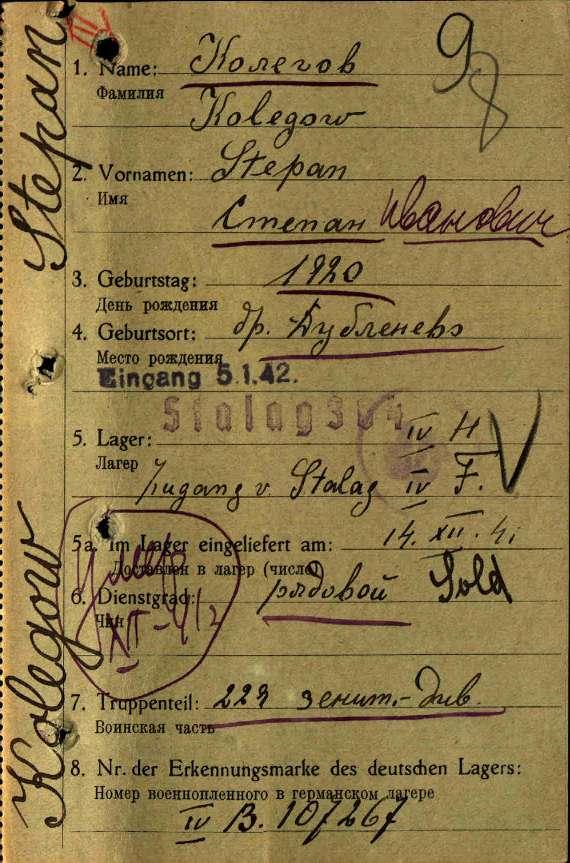 III
98
Stepan
Kolegow
1. Name: Колегов
Фамилия
Kolegow
2. Vornamen: Stepan
Имя
Степан Иванович
3. Geburtstag: 1920
День рождения
4. Geburtsort: др. Дубленевэ
Место рождения
Eingang 5.1.42.
Stalag 304
5. Lager: IV H V
Лагер
Zugang v. Stalag IV F.
5a. Im Lager eingeliefert am: 14. XII. 41
Доставлен в лагер (число)
6. Dienstgrad: рядовой Sold
Чин
XII-41г
7. Truppenteil: зенит.-див.
Воинская часть
8. Nr. der Erkennungsmarke des deutschen Lagers:
Номер военнопленного в германском лагере
IV B. 107267